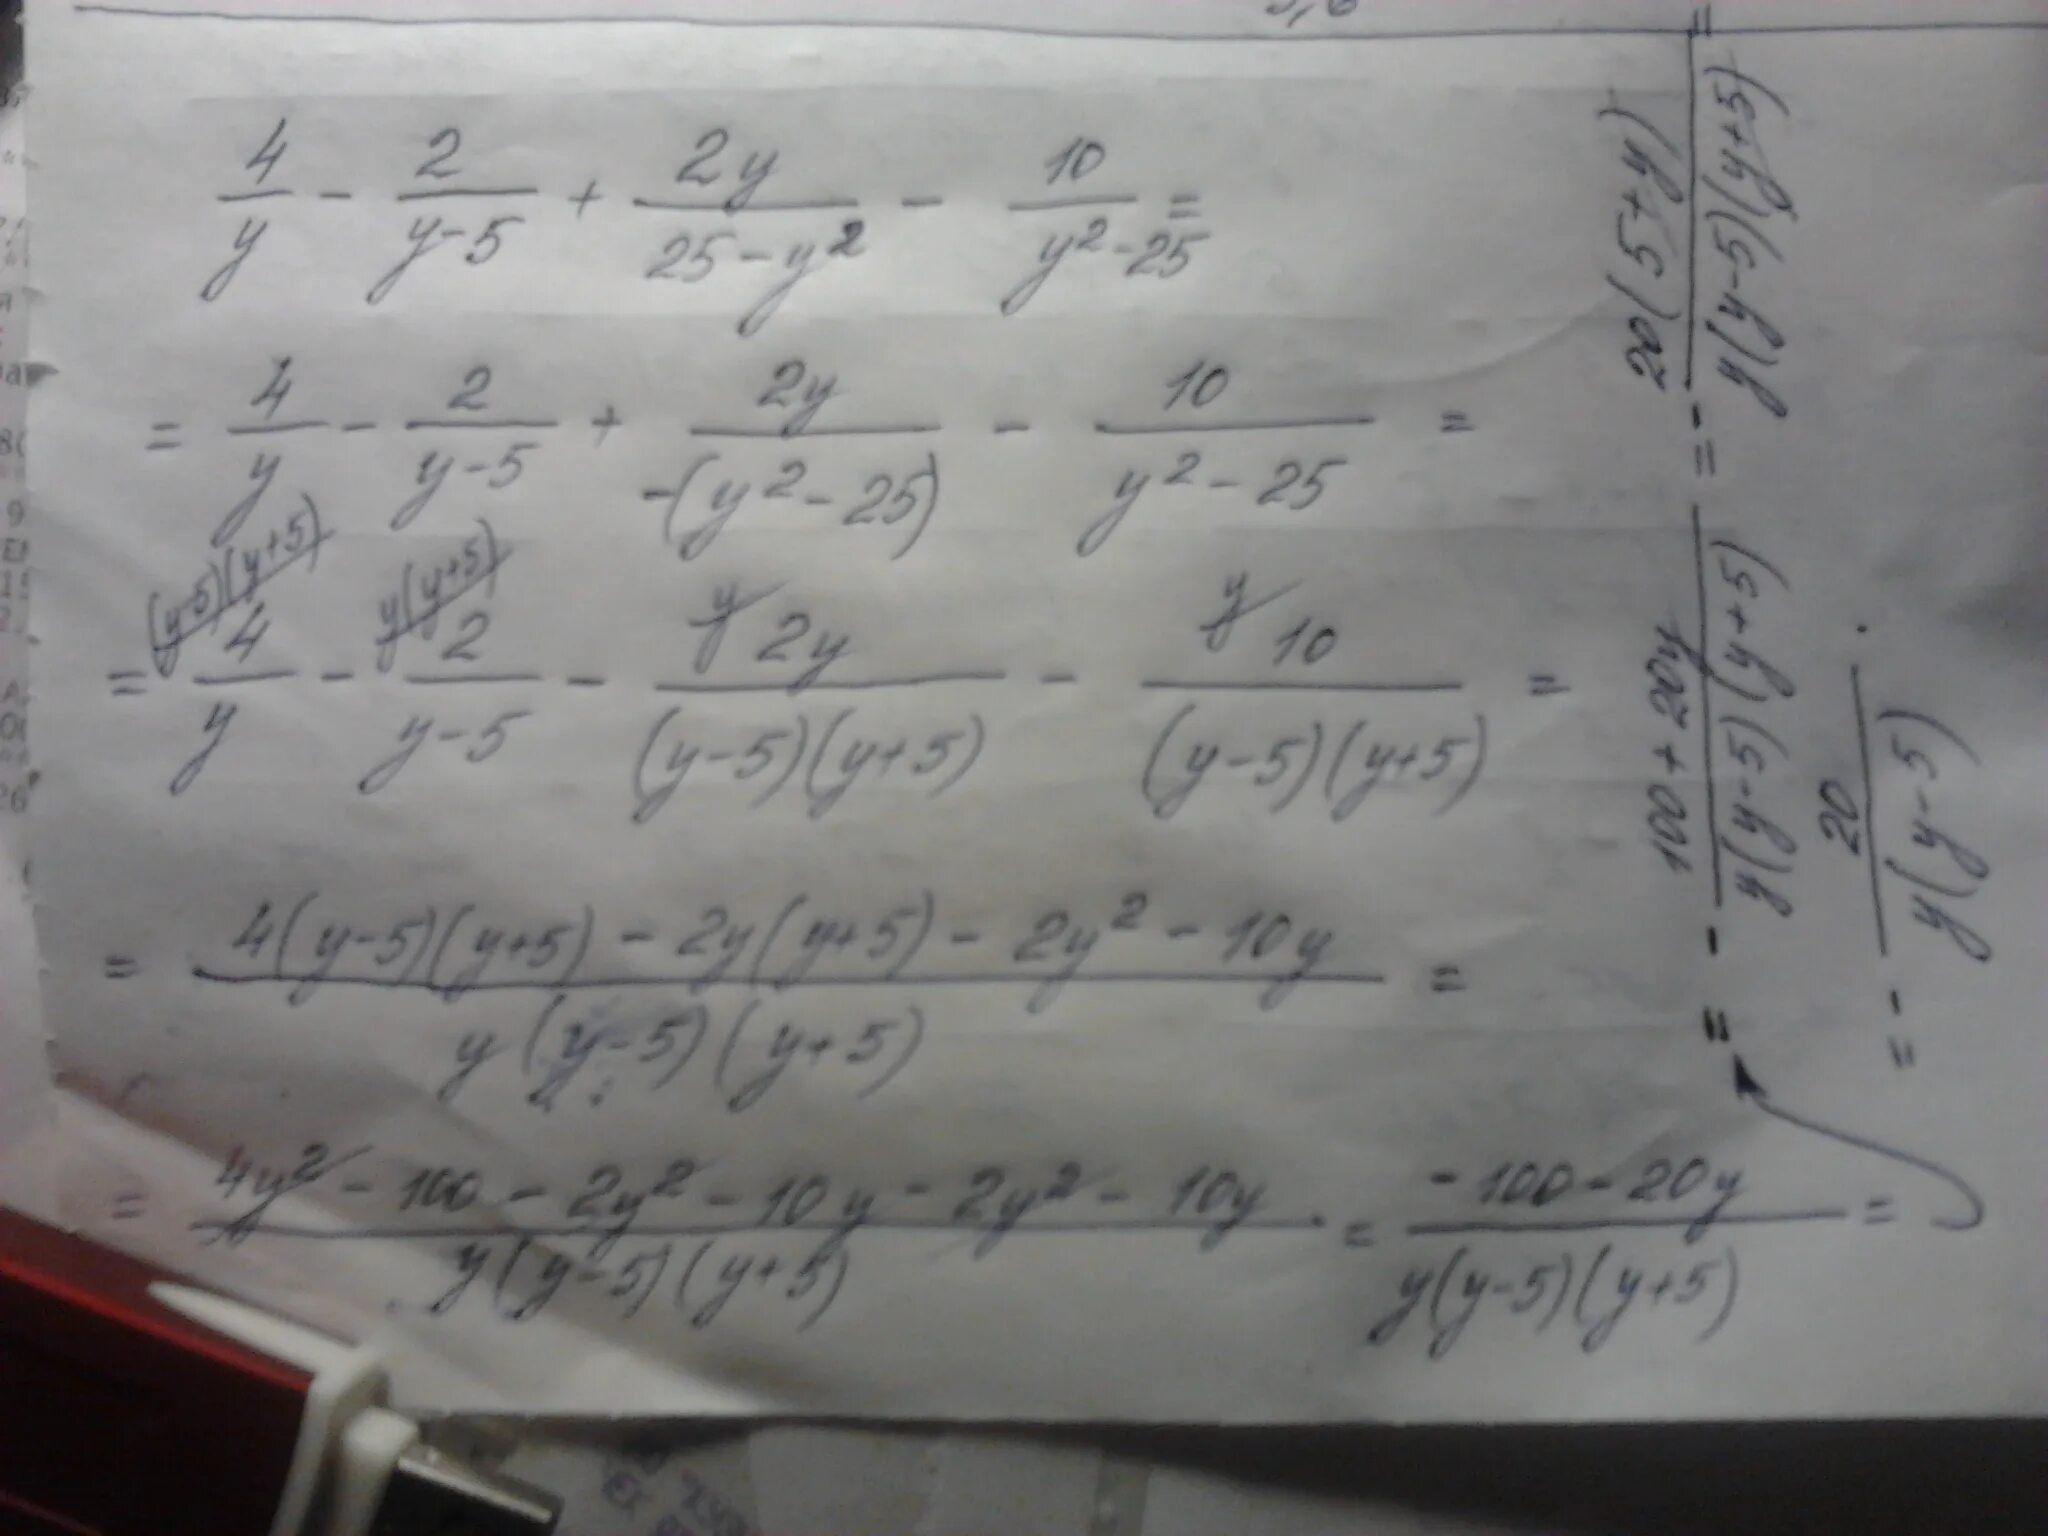 4/y - 2/(y-5) + 2y/(25-y²) - 10/(y²-25) =
= 4/y - 2/(y-5) + 2y/(-(y²-25)) - 10/(y²-25) =
(y-5)(y+5) y(y+5) y y
= 4/y - 2/(y-5) - 2y/((y-5)(y+5)) - 10/((y-5)(y+5)) =
= (4(y-5)(y+5) - 2y(y+5) - 2y² - 10y)/(y(y-5)(y+5)) =
= (4y² - 100 - 2y² - 10y - 2y² - 10y)/(y(y-5)(y+5)) = (-100-20y)/(y(y-5)(y+5)) =
= - (100+20y)/(y(y-5)(y+5)) = - 20(5+y)/(y(y-5)(y+5)) =
= - 20/(y(y-5)).